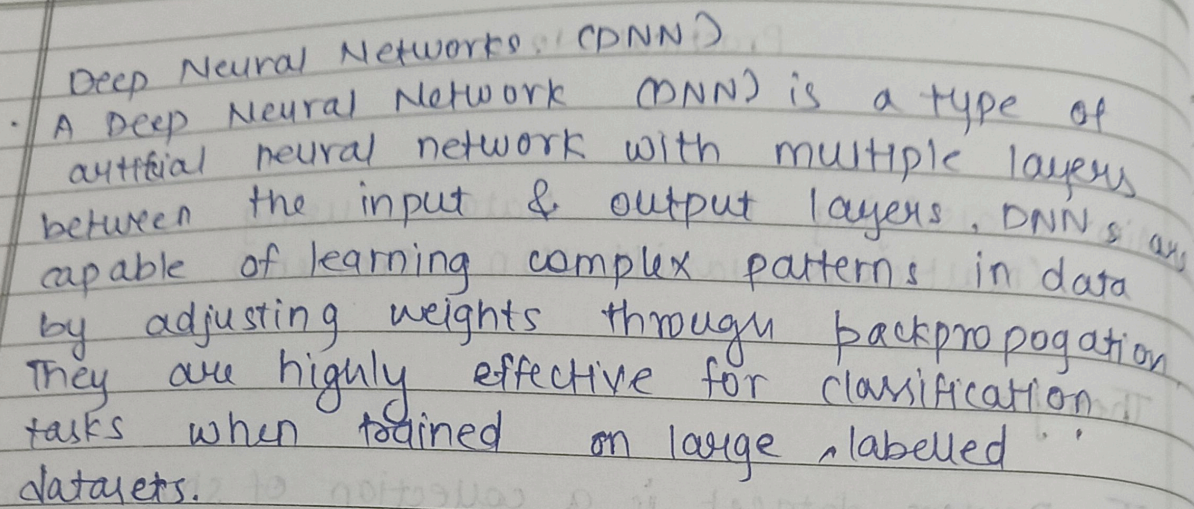 Deep Neural Networks. (DNN)
• A Deep Neural Network (DNN) is a type of
artificial neural network with multiple layers
between the input & output layers, DNNs are
capable of learning complex patterns in data
by adjusting weights through backpropogation.
They are highly effective for classification
tasks when trained on large, labelled
datasets.